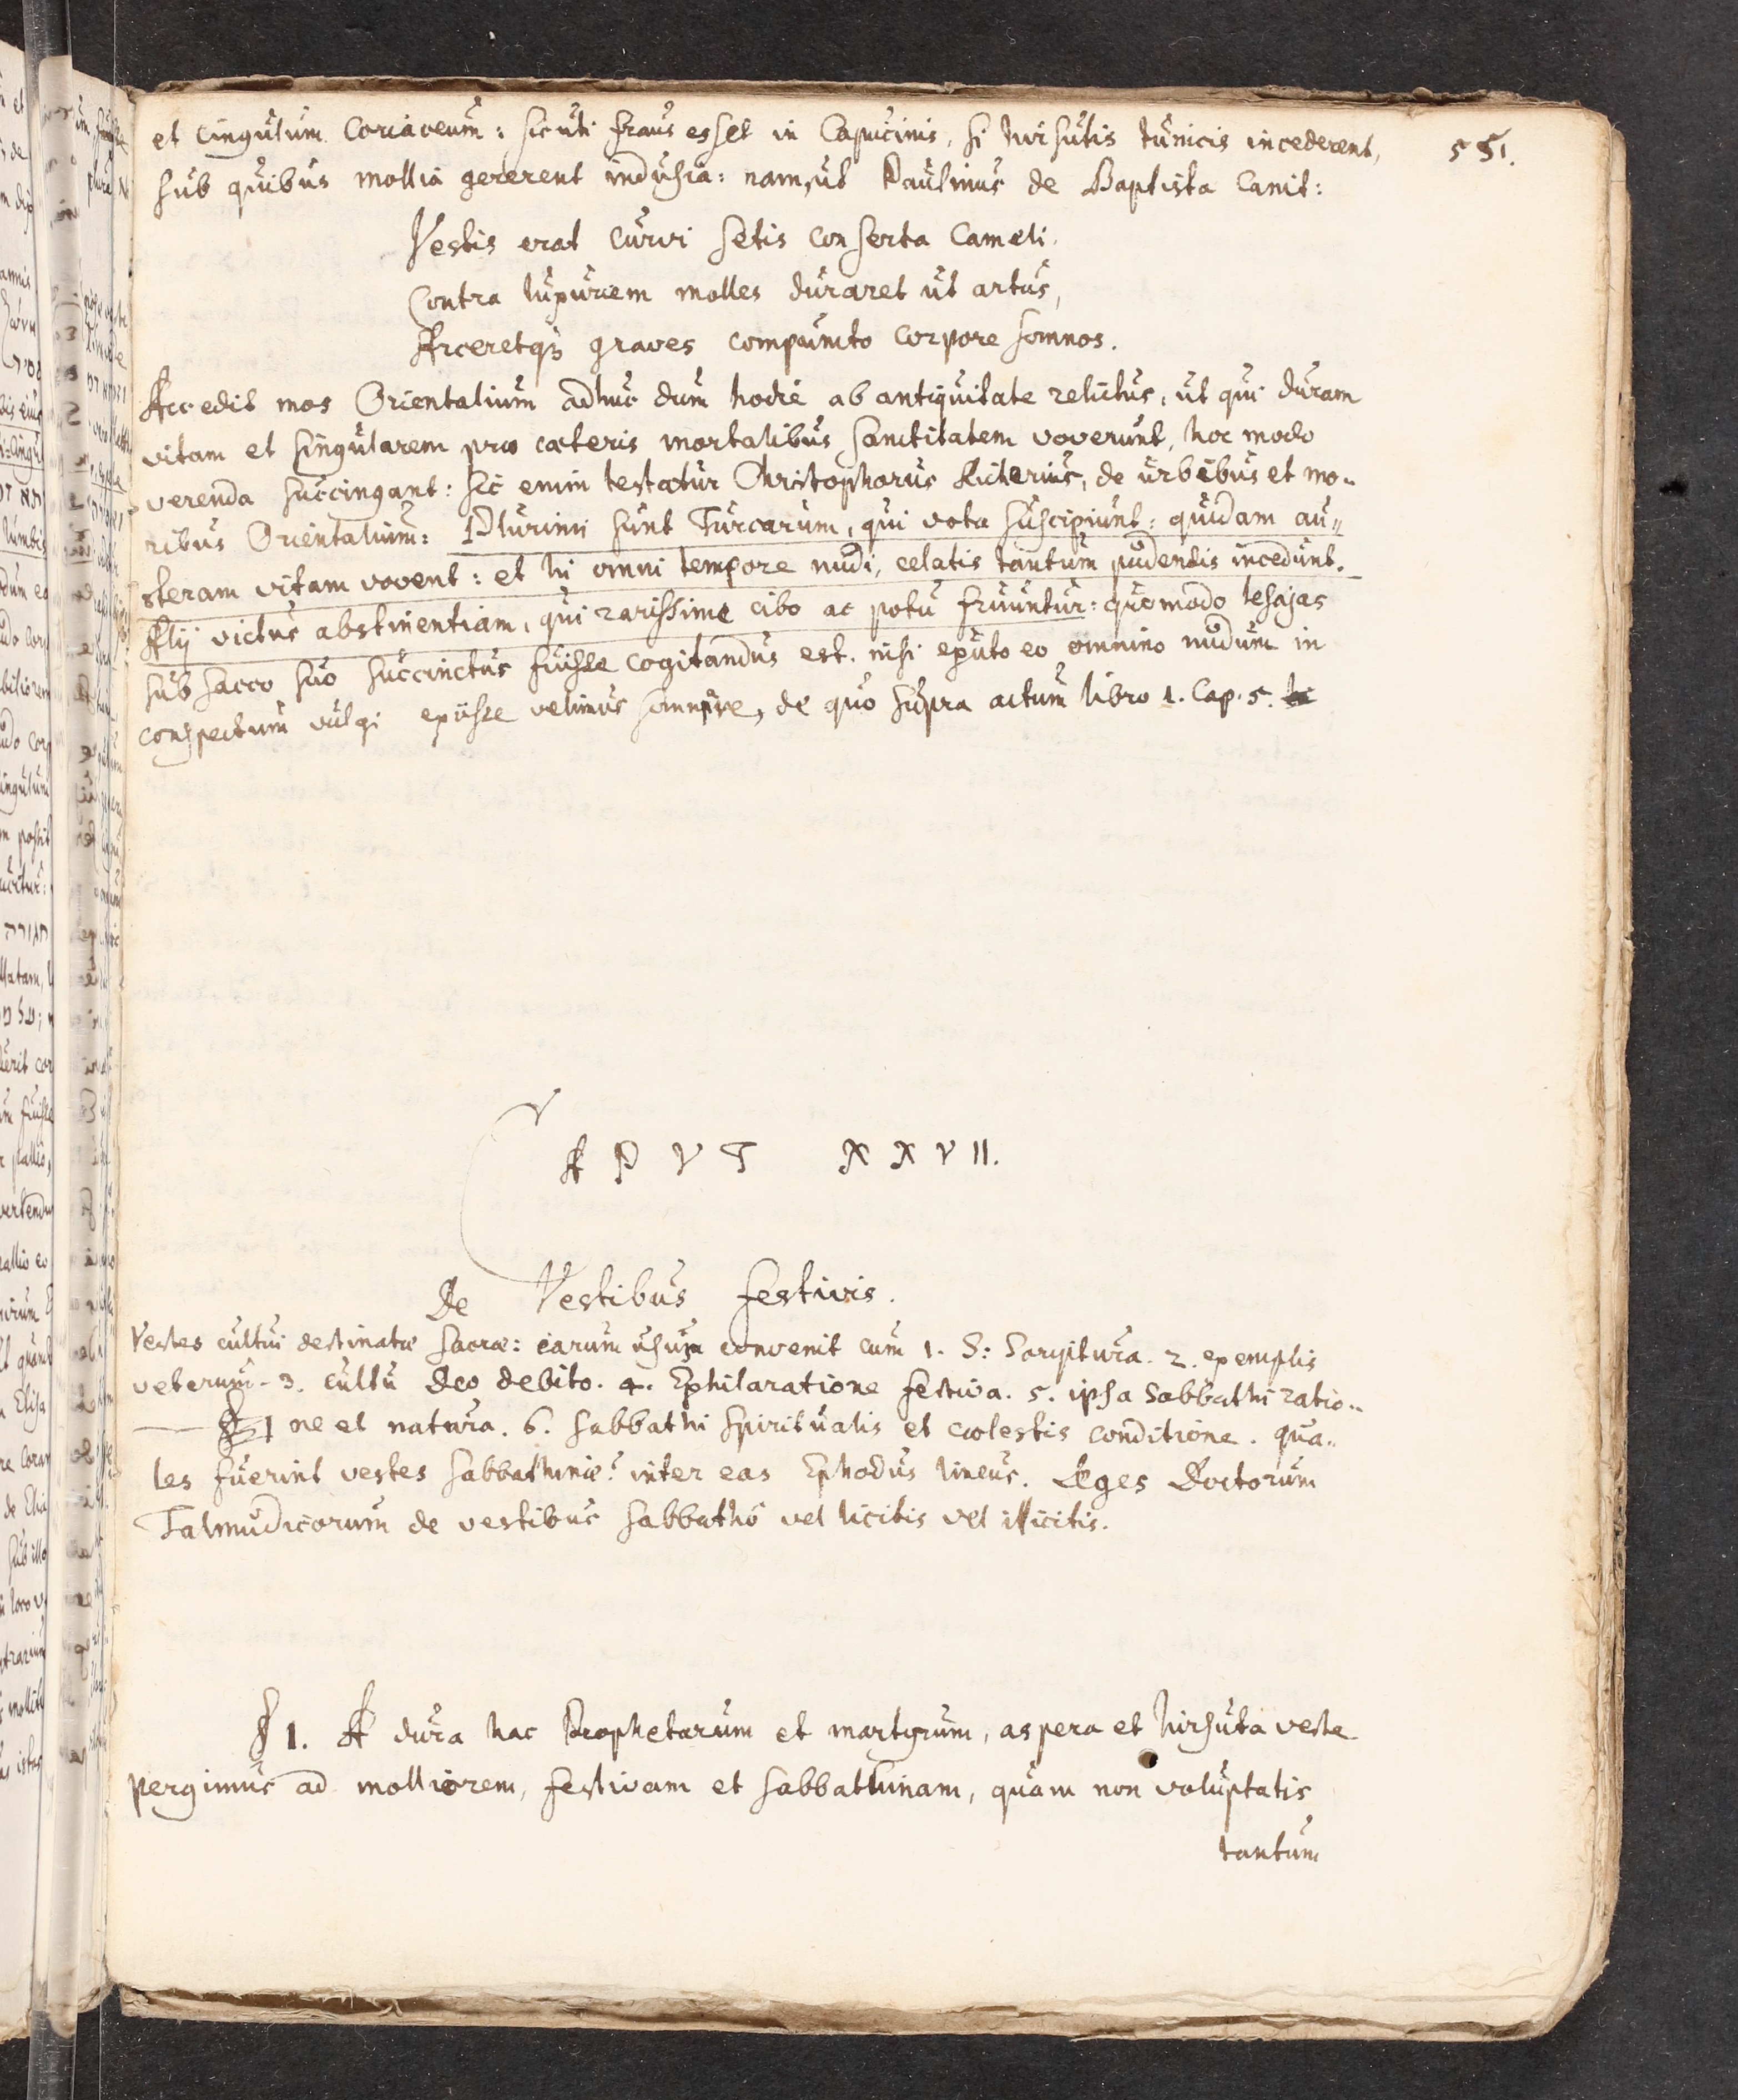 et cingulum Coriaceum: sicuti fraus esset in Capucinis, si hirsutis tunicis incederent,
551.
sub quibus mollia gererent indusia: nam, ut Paulinus de Baptista canit:
Vestis erat curvi setis conserta cameli.
Contra luxuriem molles duraret ut artus,
Arceretqȝ graves compuncto corpore somnos.
Accedit mos Orientalium adhuc dum hodie ab antiquitate relictus, ut qui duram
vitam et singularem præ cæteris mortalibus sanctitatem voverunt, hoc modo
verenda succingant: sic enim testatur Christophorus Richerius, de urbibus et mo-
ribus Orientalium: Plurimi sunt Turcarum, qui vota suscipiunt: quidam au-
steram vitam vovent: et hi omni tempore nudi, celatis tantum pudendis incedunt.
Alij victus abstinentiam, qui rarissime cibo ac potu fruuntur: quomodo Iesajas
sub sacco suo succinctus fuisse cogitandus est. nisi exuto eo omnino nudum in
conspectum vulgi exiisse velimus somniare, de quo supra actum libro 1. Cap. 5.
CAPVT XXVII.
De Vestibus festivis.
Vestes cultui destinatæ sacræ: earum usum convenit cum 1. S: Scriptura. 2. exemplis
veterum. 3. cultu Deo debito. 4. Exhilaratione festiva. 5. ipsa Sabbathi ratio-
ne et natura. 6. sabbathi spiritualis et cœlestis conditione. qua-
les fuerint vestes sabbathinæ? inter eas Ephodus lineus. Leges Doctorum
Talmudicorum de vestibus sabbatho vel licitis vel illicitis.
§ 1. A dura hac Prophetarum et martyrum, aspera et hirsuta veste
pergimus ad molliorem, festivam et sabbathinam, quam non voluptatis
tantum